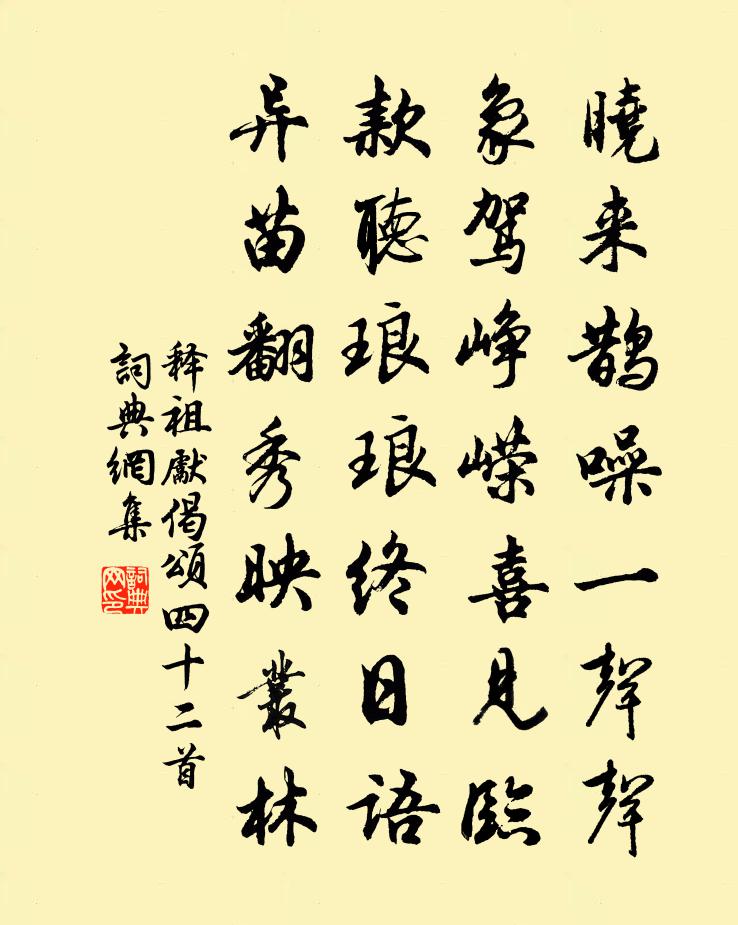 曉来鵲噪一聲聲
象驾峥嵘喜見臨
款聽琅琅終日語
异苗翻秀映叢林
释祖獻偈頌四十二首
詞典網集
詞典网印